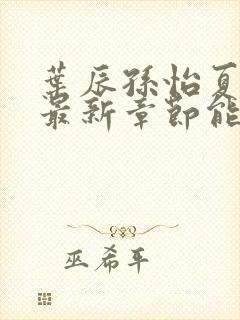 葉辰孫怡夏
最新章節能
巫希平